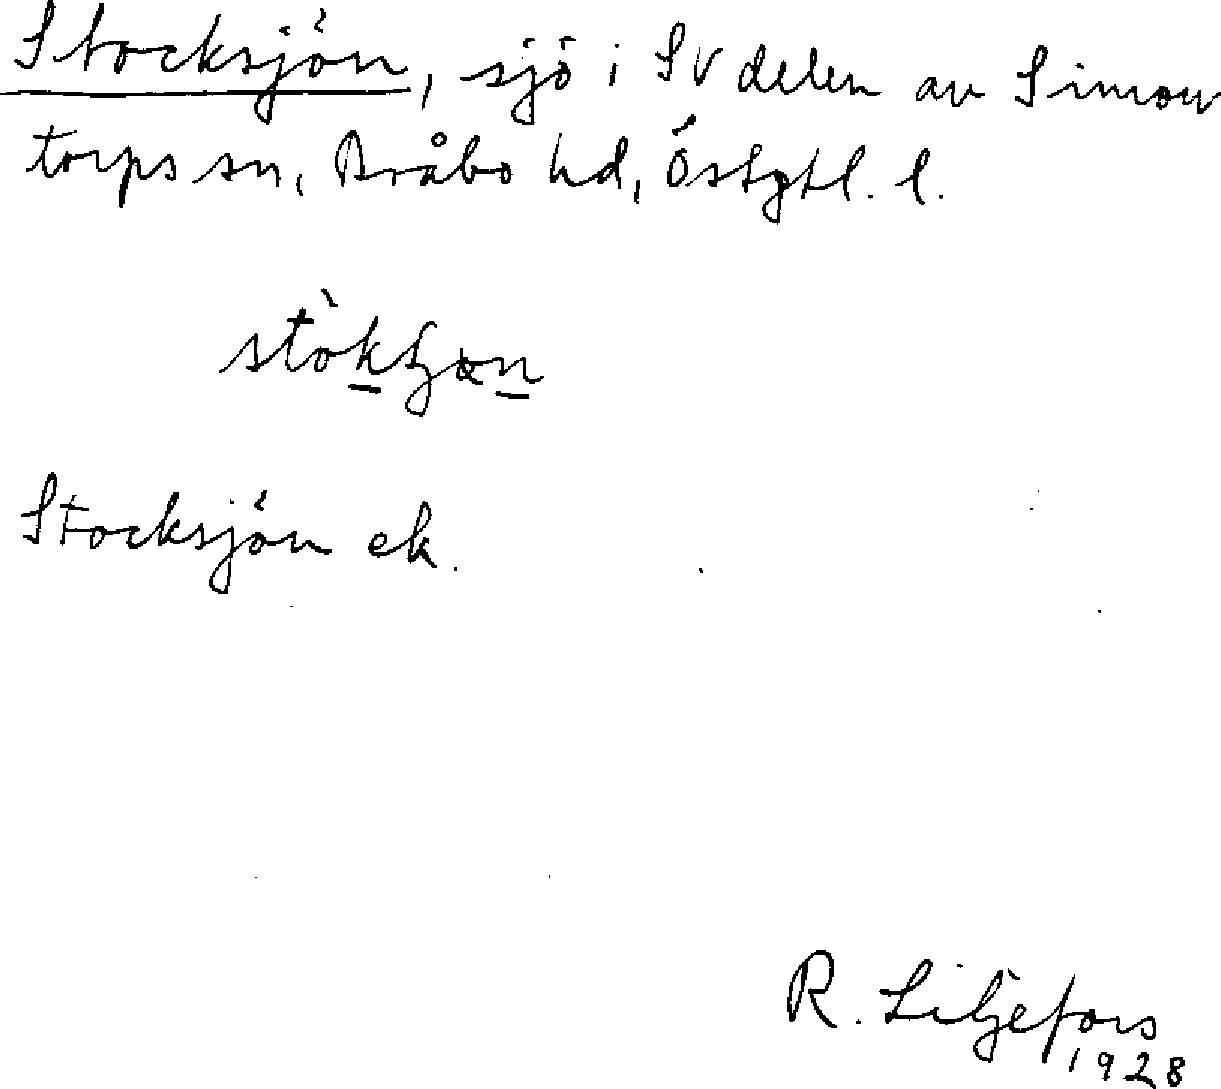 Stocksjön, sjö i SV delen av Simon
torps sn, Bråbo hd, Östgtl. l.
Stocksjön ek.
R. Liljefors
1928